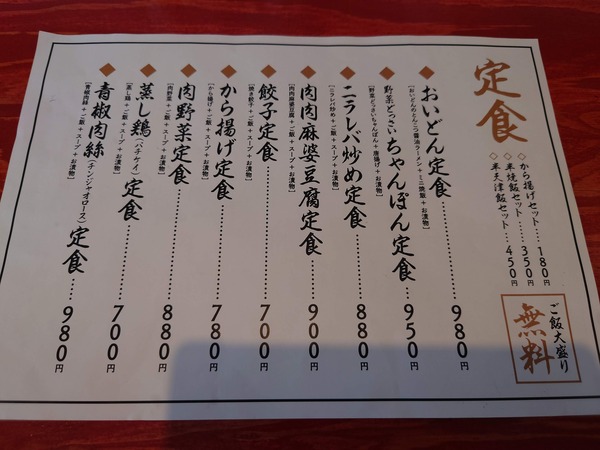 定食
◇から揚げセット…180円
◇半焼飯セット…350円
◇半天津飯セット…450円
ご飯大盛り
無料
おいどん定食………980円
野菜どっさいちゃんぽん定食…950円
[野菜どっさいちゃんぽん+唐揚げ+お漬物]
ニラレバ炒め定食………880円
[ニラレバ炒め+ご飯+スープ+お漬物]
肉肉麻婆豆腐定食………900円
[肉肉麻婆豆腐+ご飯+スープ+お漬物]
餃子定食………700円
[焼き餃子+ご飯+スープ+お漬物]
から揚げ定食………780円
[から揚げ+ご飯+スープ+お漬物]
肉野菜定食………880円
[肉野菜+ご飯+スープ+お漬物]
蒸し鶏(パチケイ)定食……700円
[蒸し鶏+ご飯+スープ+お漬物]
青椒肉絲(チンジャオロース)定食……980円
[青椒肉絲+ご飯+スープ+お漬物]